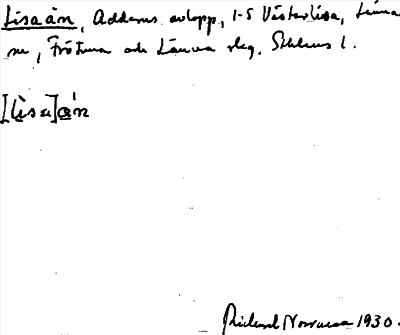 Lisaån, Addarns avlopp, 1-5 Västerlisa, Länna
sn, Frötuna och Länna slg, Sthlms l.
[lìsa]ån
Rickard Norman 1930.